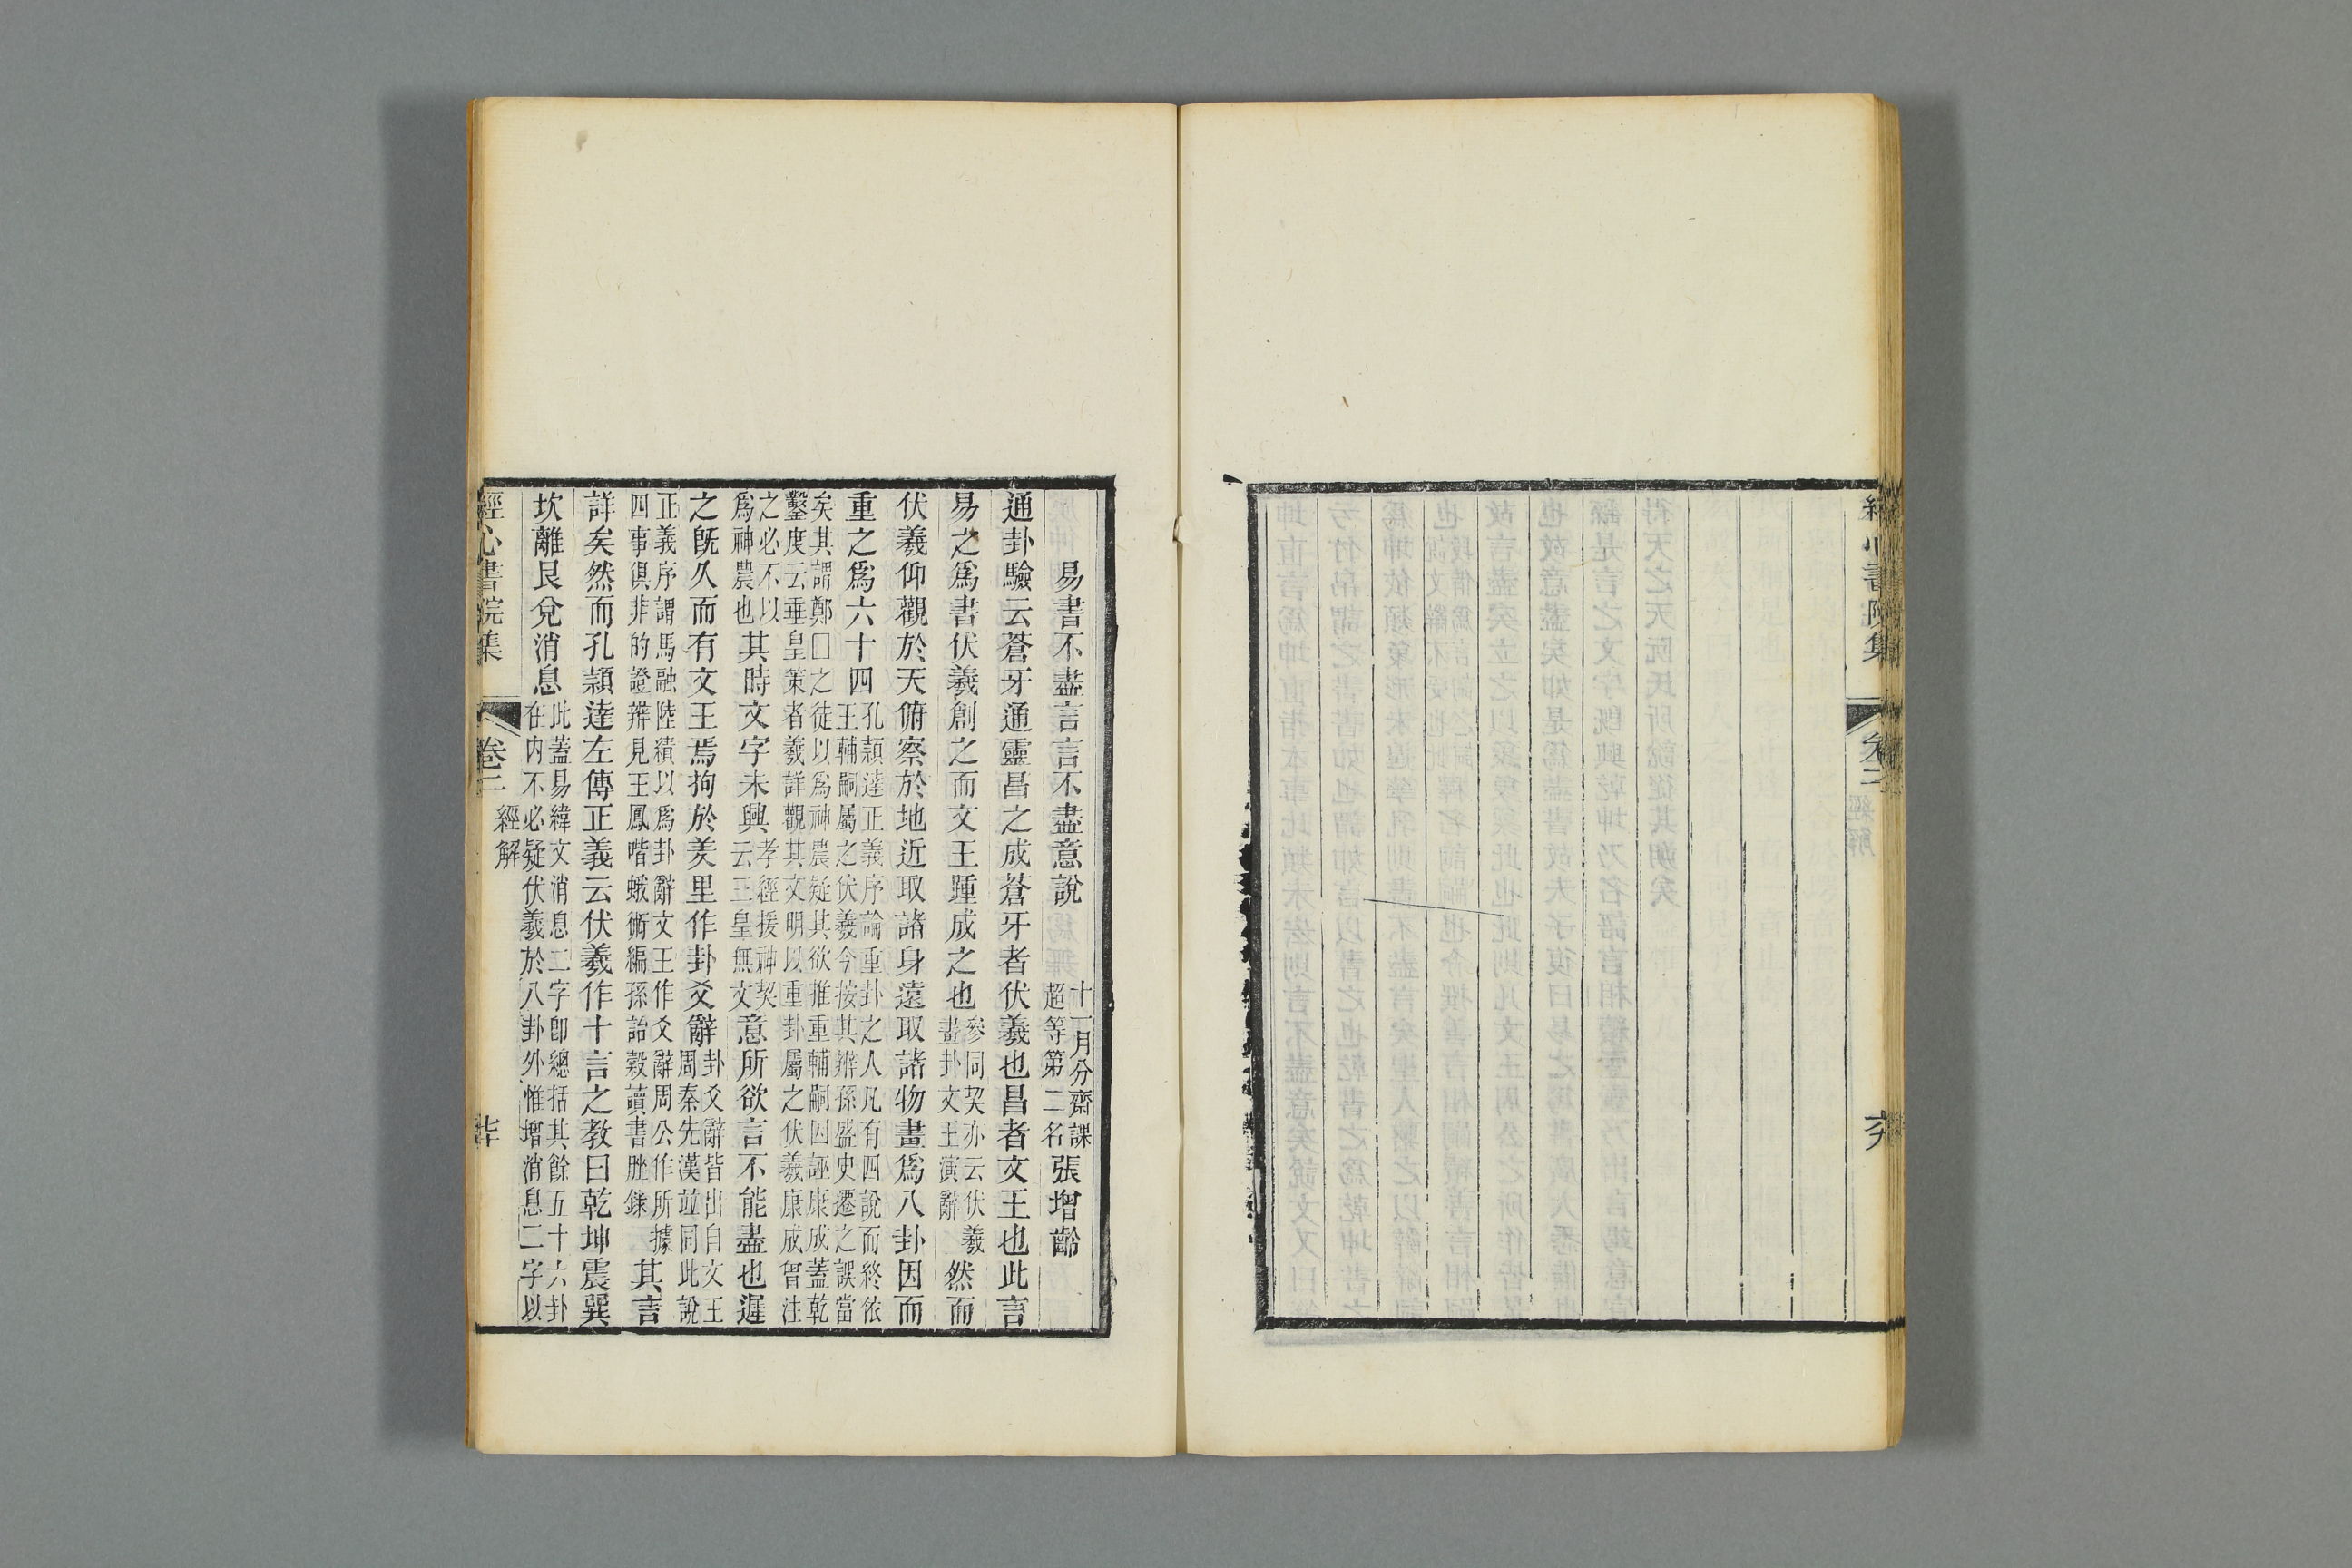 經心書院集 卷二 經解
易書不盡言言不盡意說
十一月分齋課
超等第二名
張增齡
通卦驗云蒼牙通靈昌之成蒼牙者伏羲也昌者文王也此言
易之爲書伏羲創之而文王踵成之也
參同契亦云伏羲
畫卦文王演辭
然而
伏羲仰觀於天俯察於地近取諸身遠取諸物畫爲八卦因而
重之爲六十四
孔穎達正義序論重卦之人凡有四說而終依
王輔嗣屬之伏羲今按其辨孫盛史遷之誤當
矣其謂鄭囗之徒以爲神農疑其欲推重輔嗣因誣康成蓋乾
鑿度云垂皇策者羲詳觀其文明以重卦屬之伏羲康成曾注
之必不以
爲神農也
其時文字未興
孝經援神契
云三皇無文
意所欲言不能盡也遲
之旣久而有文王焉拘於羑里作卦爻辭
卦爻辭皆出自文王
周秦先漢竝同此說
正義序謂馬融陸績以爲卦辭文王作爻辭周公作所據
四事俱非的證辨見王鳳喈蛾術編孫詒穀讀書脞錄
其言
詳矣然而孔穎達左傳正義云伏羲作十言之教曰乾坤震巽
坎離艮兌消息
此蓋易緯文消息二字卽總括其餘五十六卦
在内不必疑伏羲於八卦外惟增消息二字以
經心書院集 卷二 經解 廿